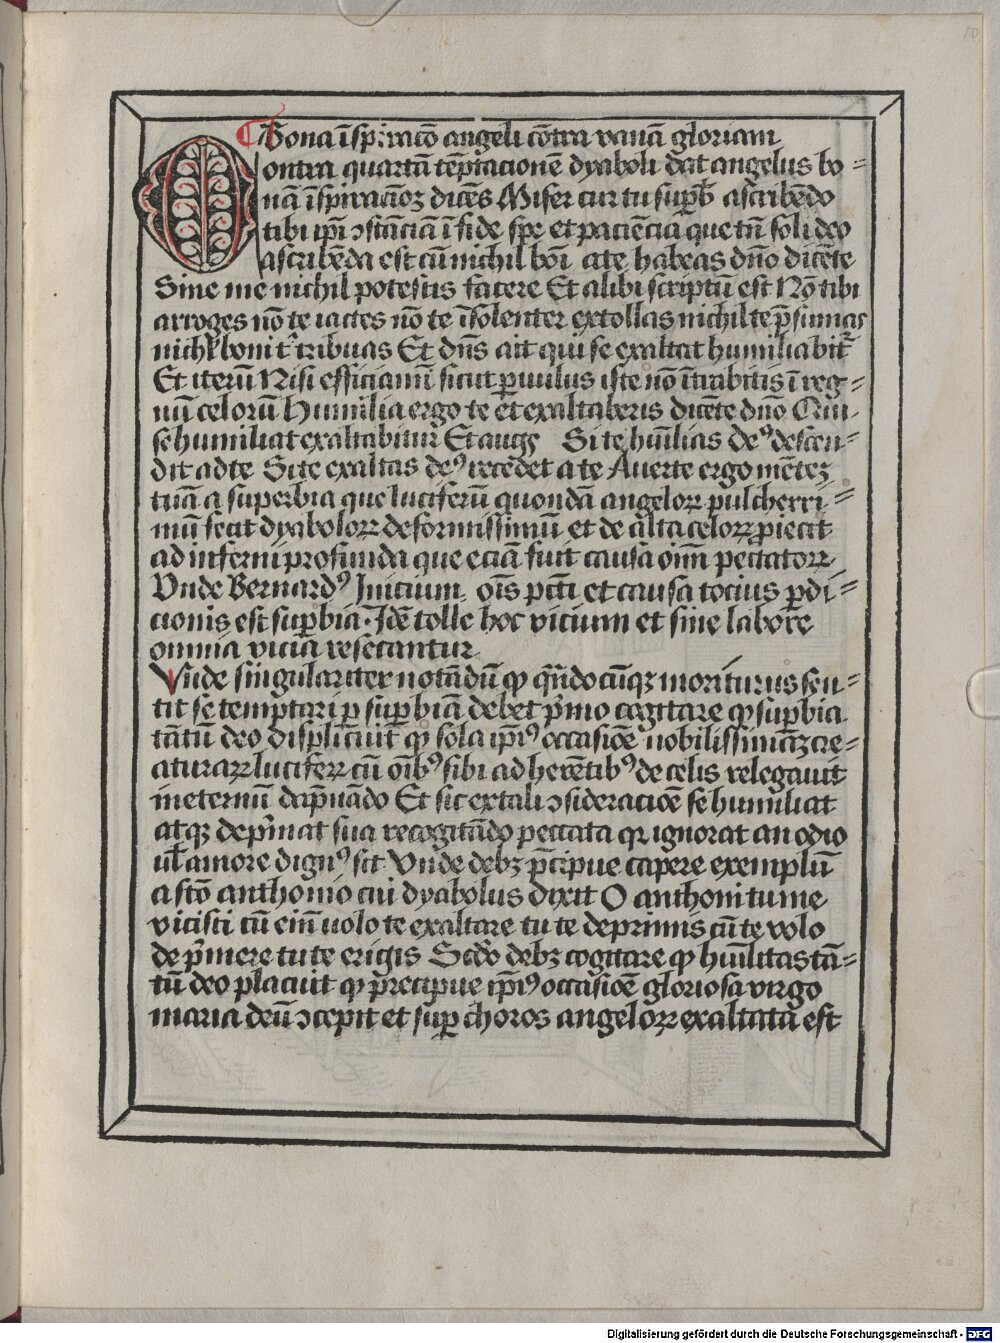 Bona īspiracō angeli cōtra vanā gloriam
Contra quartā tēptacionē dyaboli dat angelus bo=
nā īspiracioꝫ dicēs Miser cur tu supb̄ ascribēdo
tibi ip̄i ↄstāciā ī fide spe et paciēcia que tn̄ soli deo
ascribēda est cū nichil boī a te habeas dn̄o dicēte
Sine me nichil potestis facere Et alibi scriptū est Nō tibi
arroges nō te iactes nō te īsolenter extollas nichil te p̄sumas
nichil boni t' tribuas Et dn̄s ait qui se exaltat humiliabit᷑
Et iterū Nisi efficiamī sicut paruulus iste nō ītrabitis ī reg=
nū celorū Humilia ergo te et exaltaberis dicēte dn̄o Qui
se humiliat exaltabitur Et augꝰ Si te hūilias deꝰ descen=
dit ad te Si te exaltas deꝰ recedet a te Auerte ergo mēteꝫ
tuā a superbia que luciferū quondā angeloꝝ pulcherri=
mū fecit dyaboloꝝ deformissimū et de alta celoꝝ ꝓiecit
ad inferni profunda que eciā fuit causa oīm peccatoꝝ
Vnde Bernardꝰ Inicium oīs pctī et causa tocius ꝑdi=
cionis est suꝑbia Idē tolle hoc vicium et sine labore
omnia vicia resecantur
Vnde singulariter notādū ꝙ qn̄docūqꝫ moriturus sen=
tit se temptari ꝑ suꝑbiā debet p̄mo cogitare ꝙ suꝑbia
tātū deo displicuit ꝙ sola ip̄iꝰ occasiōe nobilissimāꝫ cre=
aturaꝝ luciferꝝ cū oībꝰ sibi adherētibꝰ de celis relegauit
in eternū dāpnādo Et sic ex tali ↄsideraciōe se humiliat
atqꝫ dep̄mat sua recogitādo peccata qꝛ ignorat an odio
ul̄ amore dignꝰ sit Vnde debꝫ p̄cipue capere exemplū
a sc̄o anthonio cui dyabolus dixit O anthoni tu me
vicisti cū eni̅ uolo te exaltare tu te deprimis cū te volo
dep̄mere tu te erigis Scdo debꝫ cogitare ꝙ hūilitas tā=
tū deo placuit ꝙ p̄recipue ip̄iꝰ occasiōe gloriosa virgo
maria deū ↄcepit et suꝑ choros angeloꝝ exaltata est
Digitalisierung gefördert durch die Deutsche Forschungsgemeinschaft - DFG